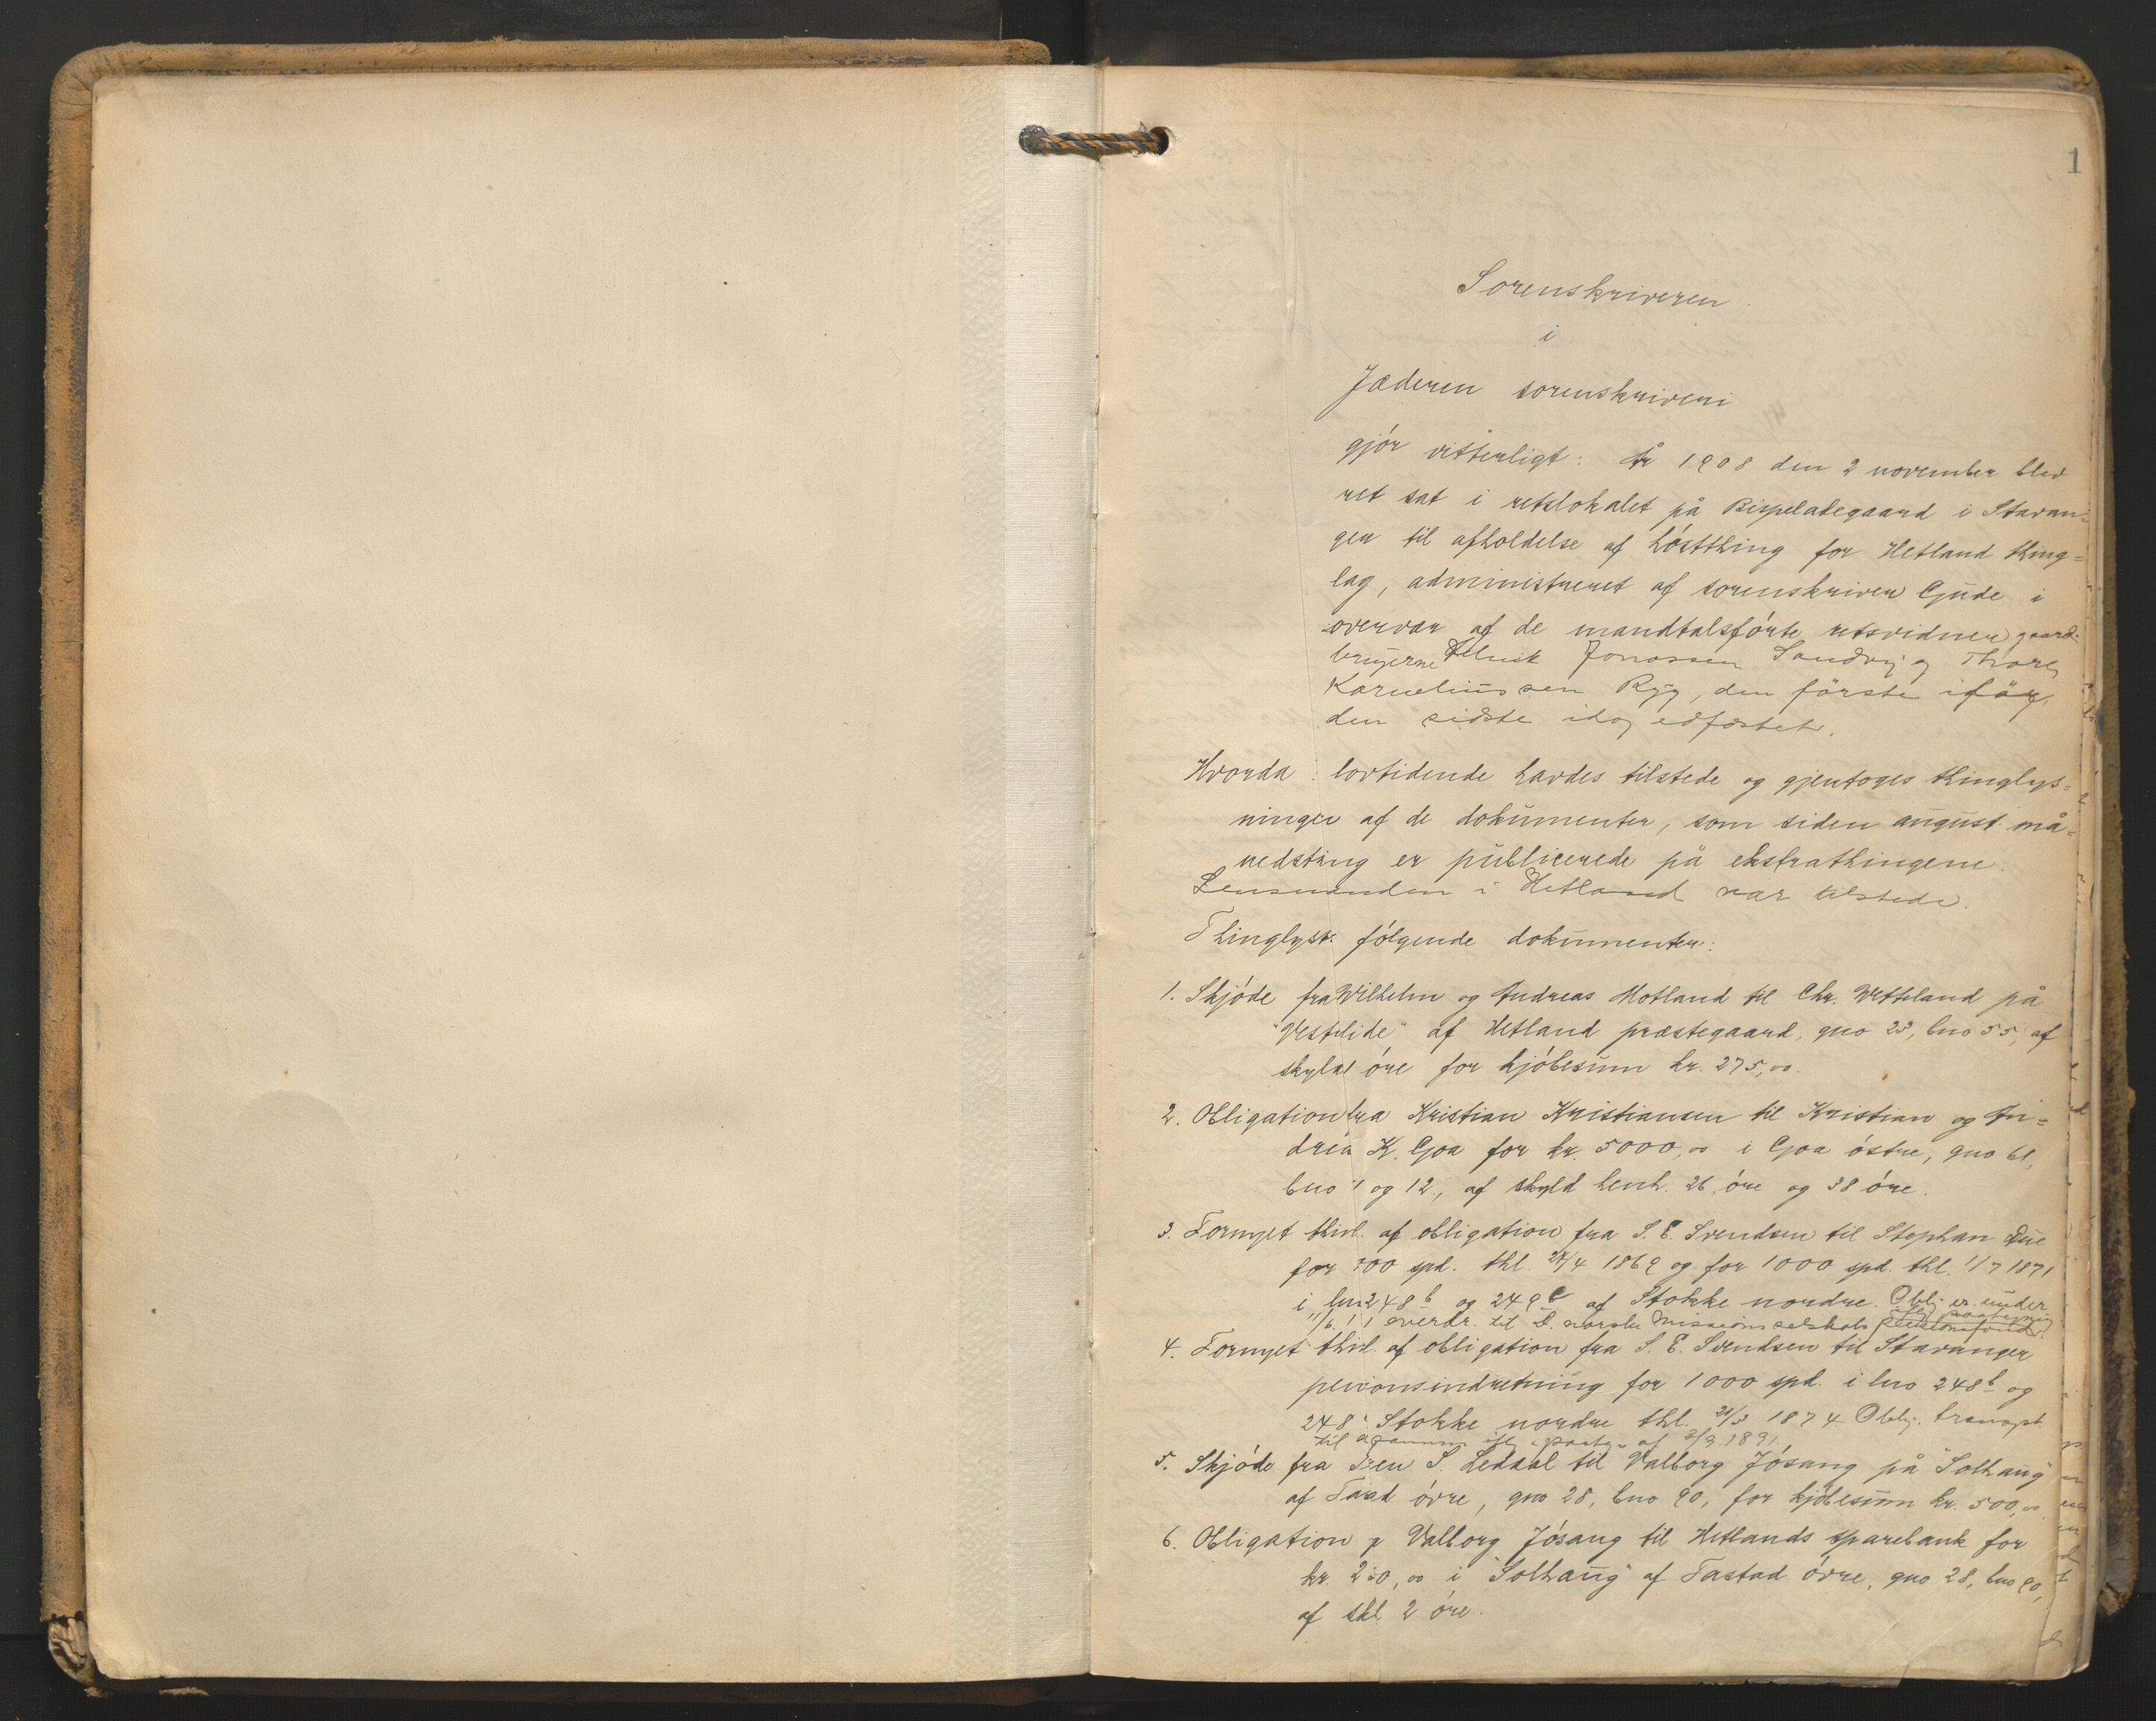 1
Sorenskriveren
i
Jæderen sorenskriveri
gjör vitterligt: År 1908 den 2 november blev
ret sat i retslokalet på Bispeladegaard i Stavan=
ger til afholdelse af hóstthing for Hetland thing=
lag, administreret af sorenskriver Gude i
overvær af de mandtalsfórte retsvidner gaard-
brugerne Jonassen Sandvig og Thore
Korneliussen Ryg, den förste iför,
den sidste idag edfæstet.
Hvorda: lovtidende havdes tilstede og gjentoges thinglys=
ninger af de dokumenter, som siden august må=
nedsting er publicerede på ekstrathingene.
Lensmanden i Hetland var tilstede.
Thinglyst fólgende dokumenter:
1. Skjóde fra Wilhelm og Andreas Motland til Chr. Vetteland på
"Vestlide" af Hetland præstegaard, gno 23, bno 55, af
skyld óre for kjóbesum kr. 275,00.
2. Obligation fra Kristian Kristiansen til Kristian og An=
drea K. Goa for kr. 5000,00 i Goa óstre, gno 61,
bno 1 og 12, af skyld henh. 26 óre og 38 óre.
3. Fornyet thvl. af obligation fra S. E. Svendsen til Stephan Due
for 700 spd. thl. 24/4 1869 og for 1000 spd. thl. 1/7 1871
i bno 248 b og 249 c af Stokke nordre. Obl. er under
11/6 11 overdr. til d. norske Missionsselskab pensionsfond ifg paategning
4. Fornyet thvl. af obligation fra S. E. Svendsen til Stavanger
pensionsindretning for 1000 spd. i bno 248 b og
248 Stokke nordre thl. 21/3 1874 Oblg. transpt.
til af 3/9 1891.
5. Skjóde fra Iven S. Ledaal til Valborg Jósang på "Solhaug"
af Tasad óvre, gno 28, bno 90, for kjóbesum kr. 500,00
6. Obligation fr Valborg Jósang til Hetlands sparebank for
kr. 250,00 i "Solhaug" af Tastad óvre, gno 28, bno 90,
af skl. 2 óre.